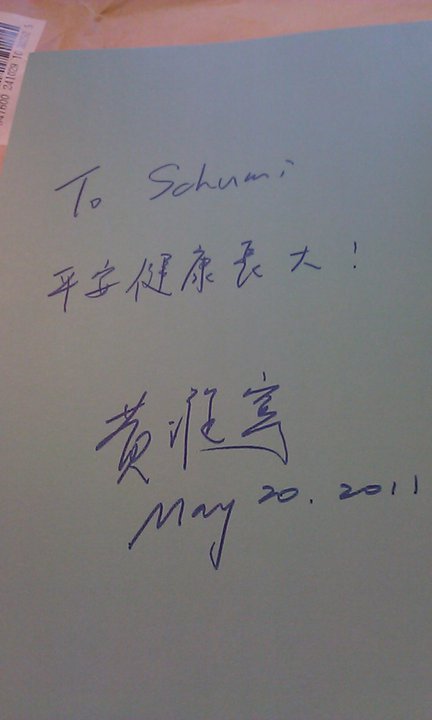 To Schumi
平安健康長大！
黃
May 20. 2011